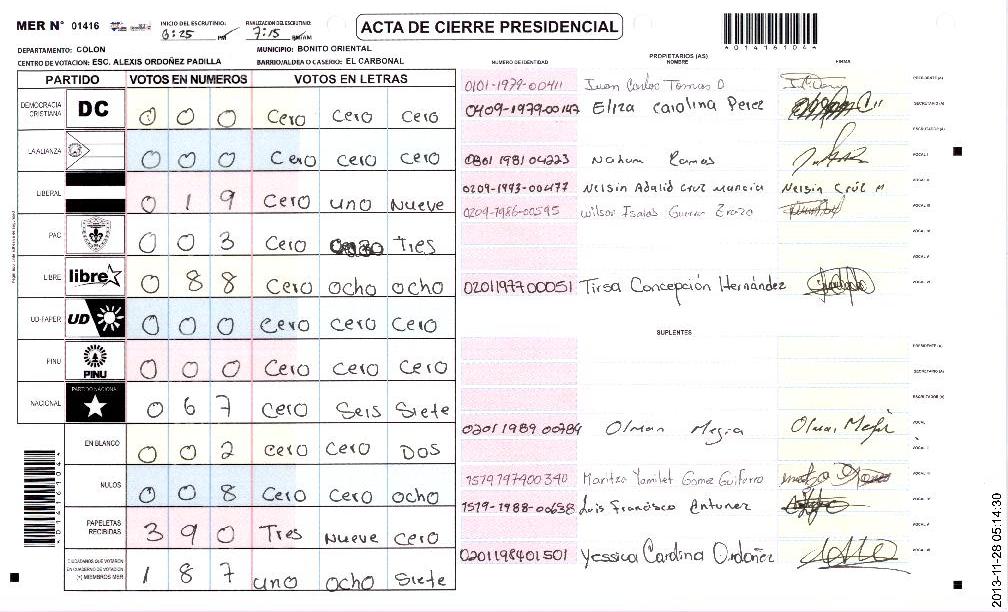 MER Nº 01416 INICIO DEL ESCRUTINIO: 6:25 PM FINALIZACION DEL ESCRUTINIO: 7:15 ACTA DE CIERRE PRESIDENCIAL
DEPARTAMENTO: COLON MUNICIPIO: BONITO ORIENTAL
CENTRO DE VOTACION: ESC. ALEXIS ORDOÑEZ PADILLA BARRIO/ALDEA O CASERIO: EL CARBONAL
PARTIDO VOTOS EN NUMEROS VOTOS EN LETRAS
DEMOCRACIA CRISTIANA DC 0 0 0 Cero Cero Cero
LA ALIANZA 0 0 0 Cero Cero Cero
LIBERAL 0 1 9 Cero uno Nueve
PAC 0 0 3 Cero Tres
LIBRE libre 0 8 8 Cero ocho ocho
UD-FAPER UD 0 0 0 Cero Cero Cero
PINU PINU 0 0 0 Cero Cero Cero
NACIONAL PARTIDO NACIONAL 0 6 7 Cero Seis Siete
EN BLANCO 0 0 2 Cero Cero Dos
NULOS 0 0 8 Cero Cero ocho
PAPELETAS RECIBIDAS 3 9 0 Tres Nueve Cero
CIUDADANOS QUE VOTARON EN CUADERNO DE VOTACION (+) MIEMBROS MER 1 8 7 uno ocho Siete
PROPIETARIOS (AS)
NUMERO DE IDENTIDAD NOMBRE FIRMA
0101-1979-00411 Juan Carlos Tomas O PRESIDENTE (A)
0409-1979-00147 Eliza Carolina Perez SECRETARIO (A)
ESCRUTADOR (A)
0801 1981 04223 Nahum Ramos VOCAL I
0209-1993-00477 Nelsin Adalid Cruz Murcia Nelsin Cruz M VOCAL II
0209-1986-00595 Wilson Isaias VOCAL III
VOCAL IV
VOCAL V
0201197700051 Tirsa Concepción Hernández VOCAL VI
SUPLENTES
PRESIDENTE (A)
SECRETARIO (A)
ESCRUTADOR (A)
0201 1989 00784 Olman VOCAL I
VOCAL II
Maritza Yamilet VOCAL III
1519-1988-00638 Luis Francisco Antunez VOCAL IV
VOCAL V
0201198401501 Yessica Carolina Ordoñez VOCAL VI
2013-11-28 05:14:30